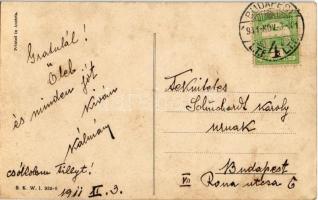 Printed in Austria.
Gratulál!
Ölel
és minden jót
kíván
Kálmán
csókolom Tillyt!
1911 XI. 3.
B. K. W. I.
BUDAPEST
4
Tekintetes
Schuchardt Károly
urnak
VII Budapest
Rona utcza 6